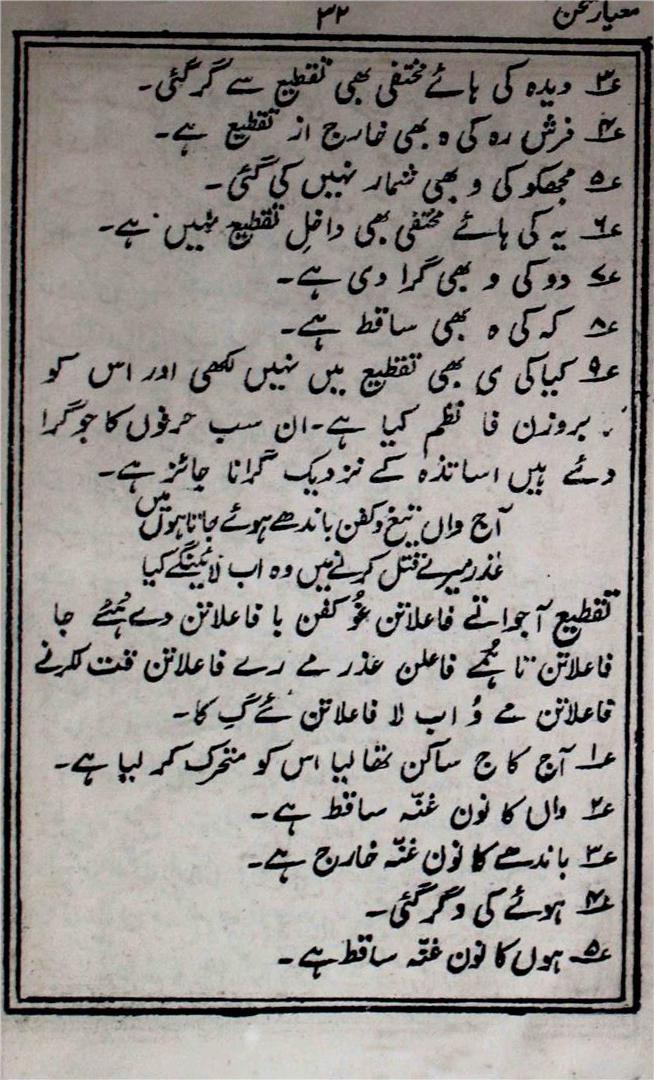 معیار سخن
۳۲
۳؎ دیدہ کی ہائے مختفی بھی تقطیع سے گر گئی۔
۴؎ فرش رہ کی ہ بھی خارج از تقطیع ہے۔
۵؎ مجھکو کی و بھی شمار نہیں کی گئی۔
۶؎ یہ کی ہائے مختفی بھی داخلِ تقطیع نہیں ہے۔
۷؎ دو کی و بھی گرا دی ہے۔
۸؎ کہ کی ہ بھی ساقط ہے۔
۹؎ کیا کی ی بھی تقطیع میں نہیں لکھی اور اس کو
بروزن فا نظم کیا ہے۔ان سب حرفوں کا جو گرا
دئے ہیں اساتذہ کے نزدیک گرانا جائز ہے۔
آج واں تیغ و کفن باندھے ہوئے جاتا ہوں میں
عذر میرے قتل کرنے میں وہ اب لائینگے کیا
تقطیع آجوا تے فاعلاتن غو کفن با فاعلاتن دے ہئے جا
فاعلاتن تا ہمے فاعلن عذر مے رے فاعلاتن قت لکرنے
فاعلاتن مے وُ اب لا فاعلاتن ئے گِ کا۔
۱؎ آج کا ج ساکن تھا لیا اس کو متحرک کر لیا ہے۔
۲؎ واں کا نون غنّہ ساقط ہے۔
۳؎ باندھے کا نون غنّہ خارج ہے۔
۴؎ ہوئے کی و گر گئی۔
۵؎ ہوں کا نون غنّہ ساقط ہے۔